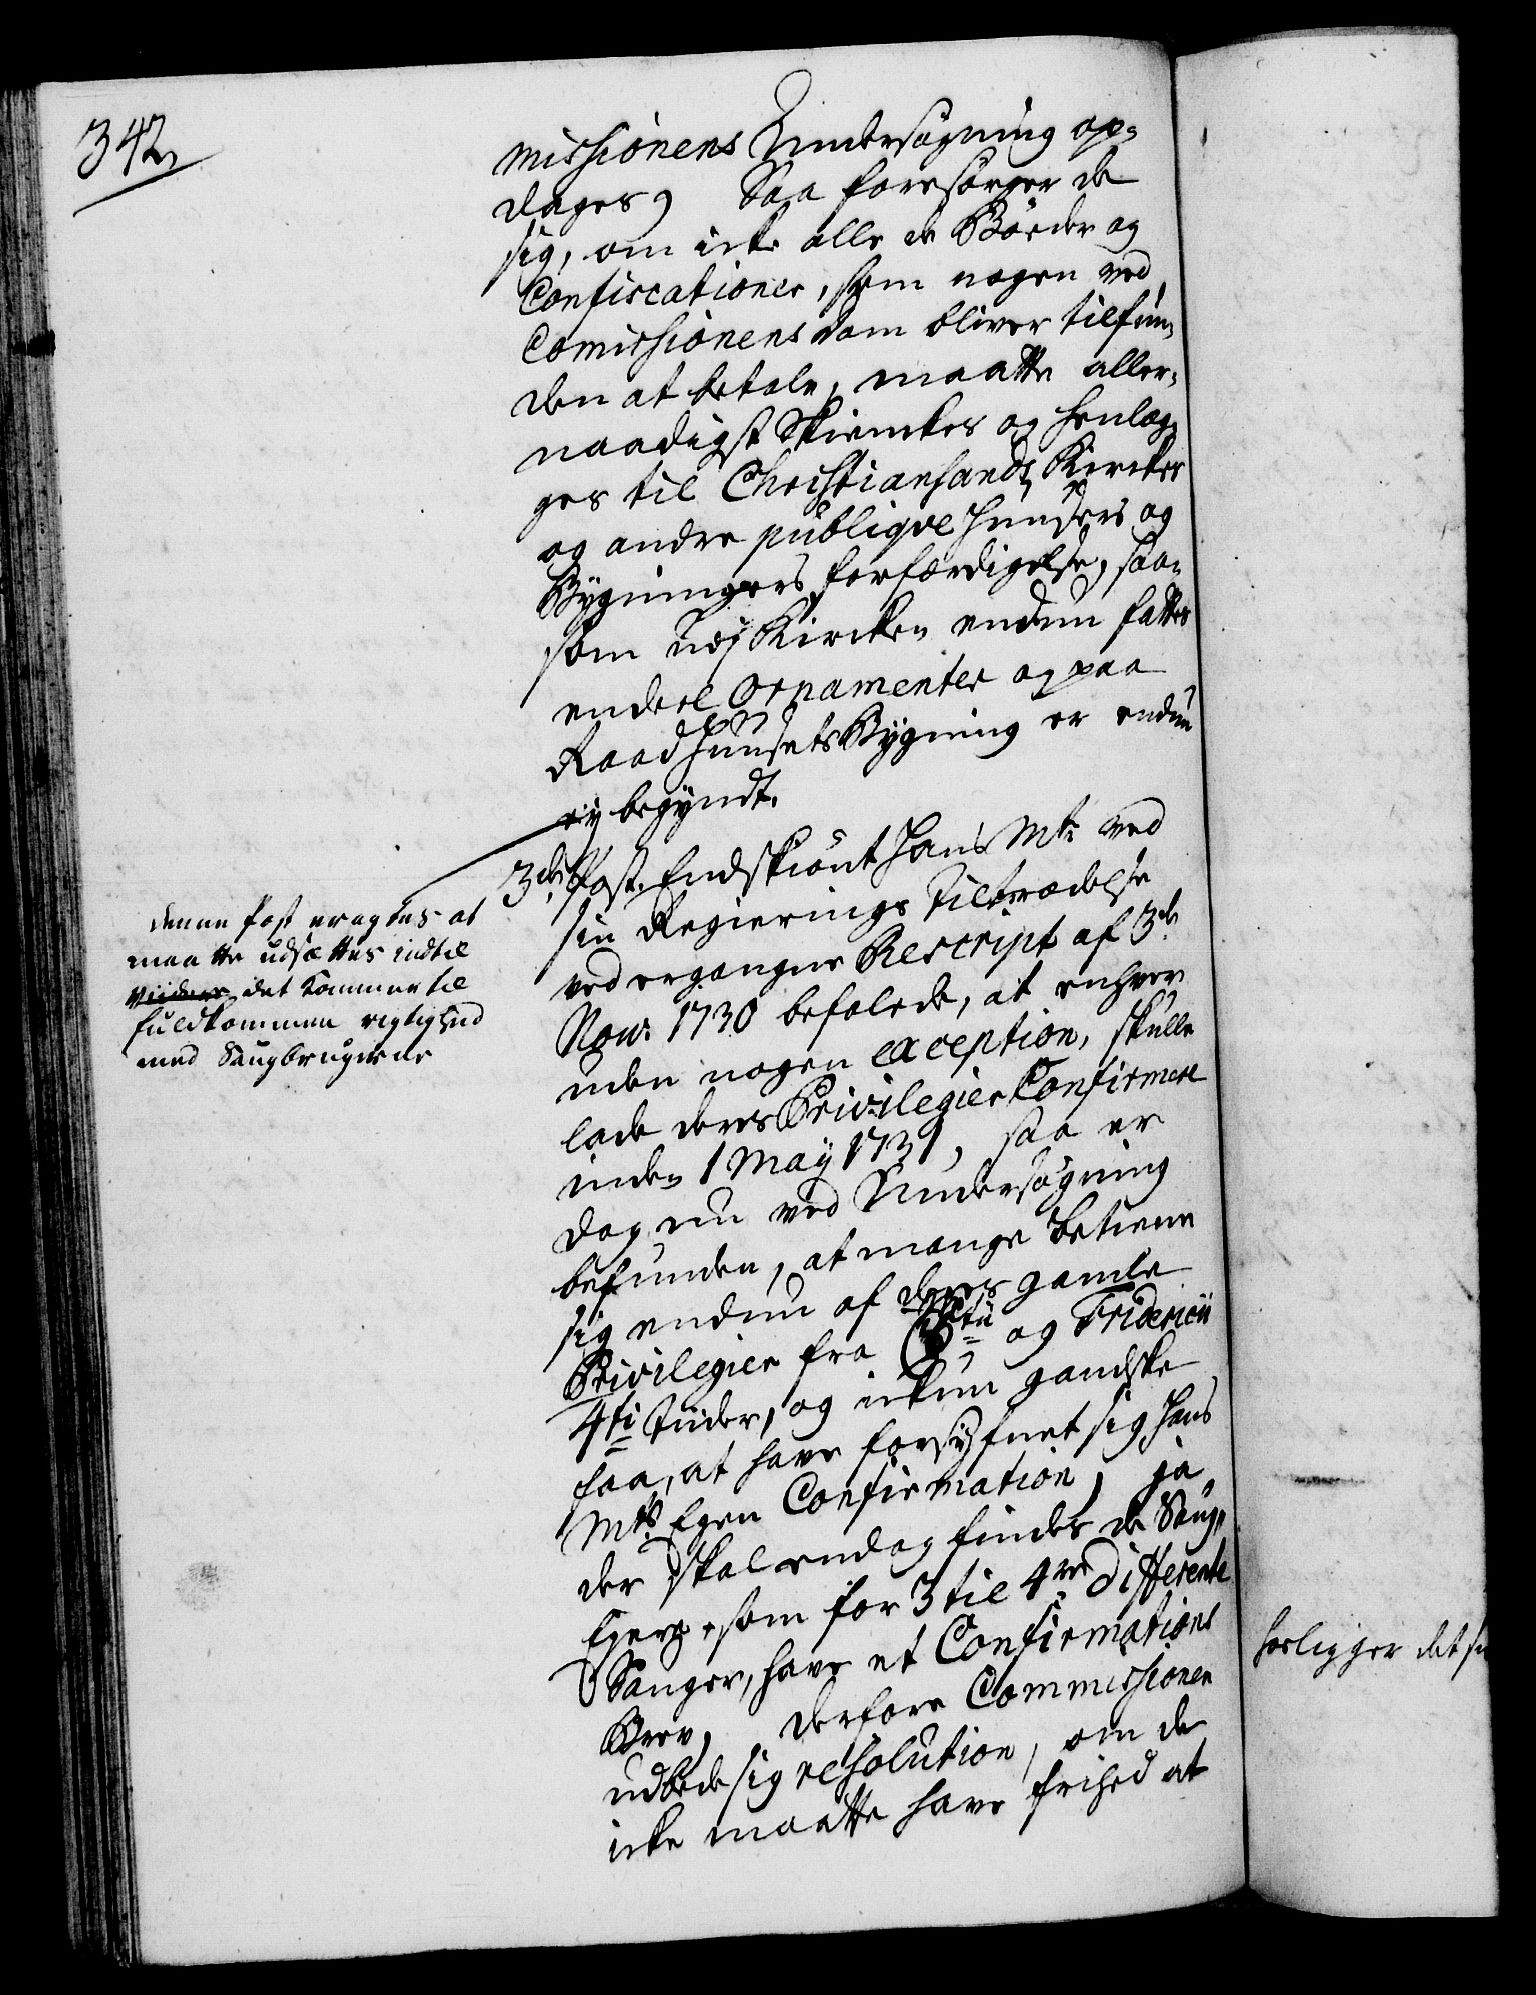 342
missionens Undersøgning op-
dages, Saa forespørger de
sig, om icke alle de Bøeder og
Confiscationer, som nogen ved
Comissionens Dom bliver tilfun-
den at betale, maatte aller-
naadigst Skienckes og henlæg-
ges til Christiansands Kirckes
og andre publiqve Huusers og
Bygningers forfærdigelse, saa-
som udj Kircken endnu fattes
endeel Ornamenter og paa
Raadhuusets Bygning er endnu
ey begyndt.
3de Post. Endskiønt Hans Mtt ved
sin Regierings Tiltrædelse
ved ergangne Rescript af 3de
Nov: 1730 befalede, at enhver
uden nogen exception, skulle
lade deres Privilegier Confirmere
inden 1 May 1731, saa er
dog nu ved Undersøgning
befunden, at mange betiene
sig endnu af deres gamle
Privilegier fra C 5ti og Friderici
4ti tider, og ickun gandske
faa, at have forsyfnet sig Hans
Mtts Egen Confirmation, ja
der skal endog findes de Saug-
Ejere som for 3 til 4re differente
Sauger, have et Confirmations
Brev, derfore Commissionen
udbede sig resolution, om de
icke maatte have frihed at
denne Post eragtes at
maatte udsættes indtil
viidere det kommer til
fuldkommen rigtighed
med Saugbrugerne
forligger det